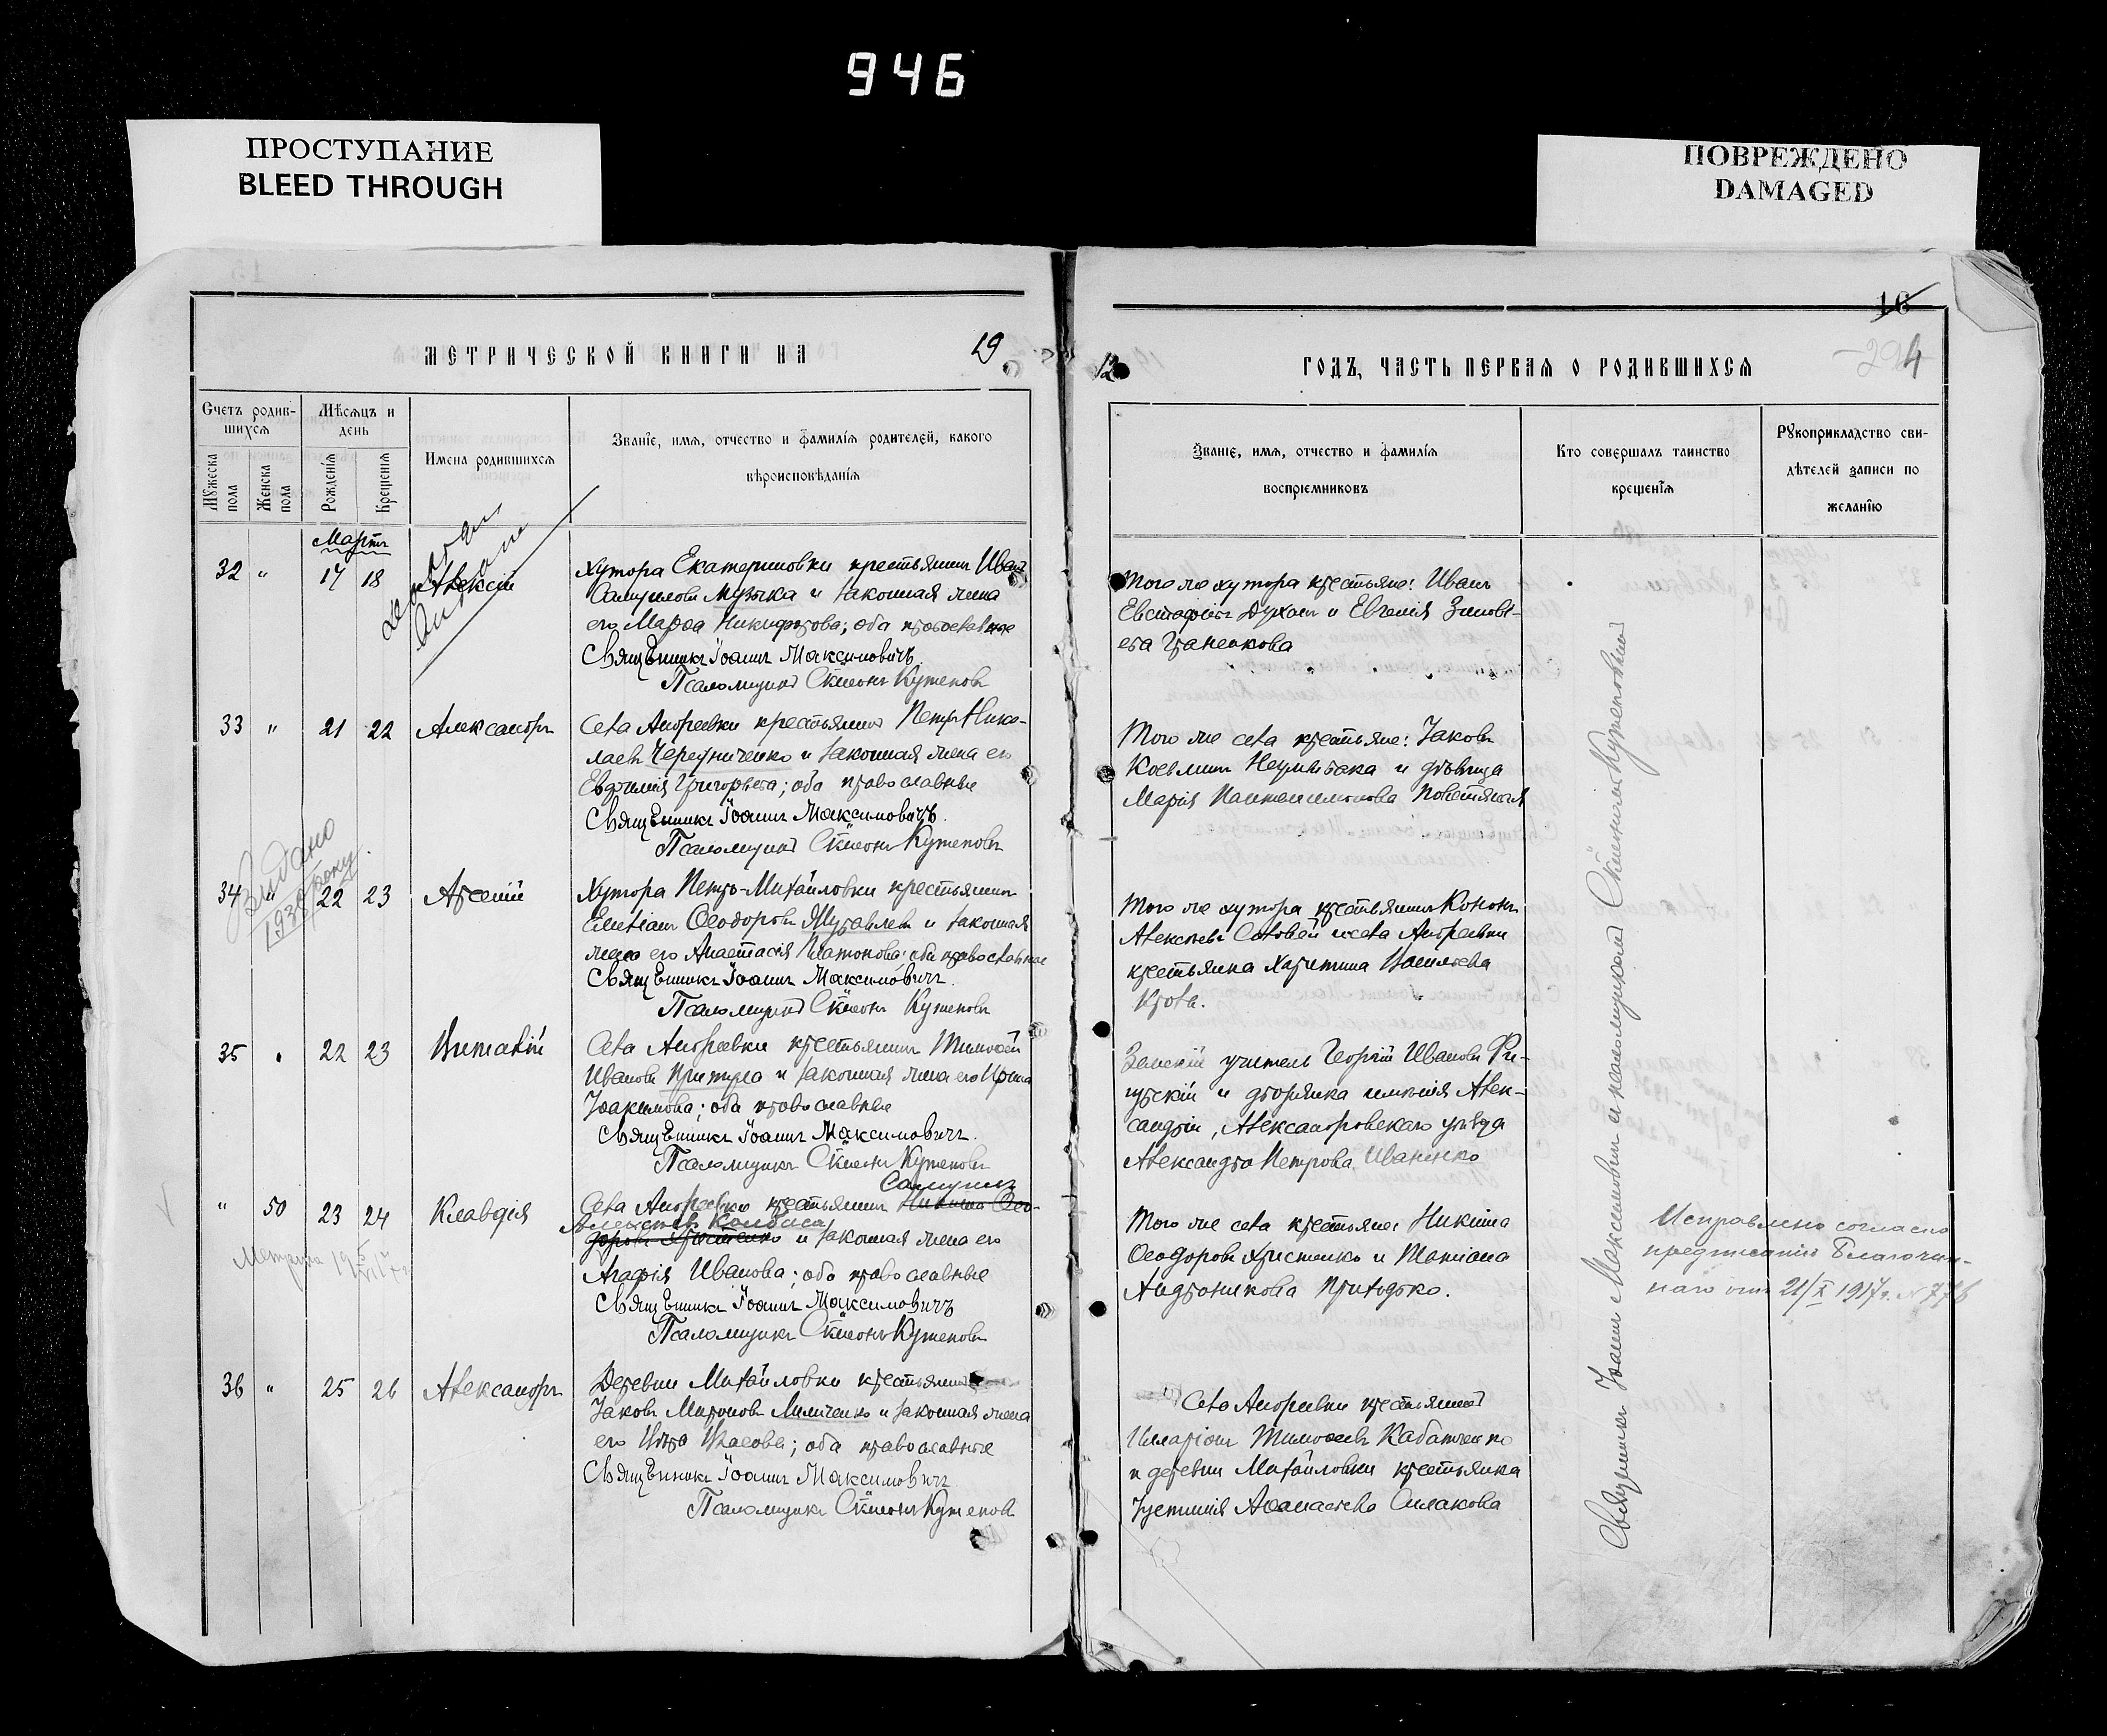 946
ПРОСТУПАНИЕ
BLEED THROUGH
ПОВРЕЖДЕНО
DAMAGED
16
294
МЕТРИЧЕСКОЙ КНИГИ НА 19
12 ГОДЪ, ЧАСТЬ ПЕРВАЯ О РОДИВШИХСЯ
Счетъ родив-
шихся
Мужеска пола
Женска пола
Мѣсяцъ и
день
Рожденія
Крещенія
Имена родившихся
Званіе, имя, отчество и фамилія родителей, какого
вѣроисповѣданія
Званіе, имя, отчество и фамилія
воспріемниковъ
Кто совершалъ таинство
крещенія
Рукоприкладство сви-
дѣтелей записи по
желанію
Мартъ
32 " 17 18 Алексій
Хутора Екатериновки крестьянинъ Иванъ
Самуиловъ Музыка и законная жена
его Марѳа Никифорова; оба православные
Священникъ Іоаннъ Максимовичъ
Псаломщикъ Сѵмеонъ Кутеповъ
Того же хутора крестьяне: Иванъ
Евстафіевъ Духан и Евгенія Зиновь-
ева
33 " 21 22 Александръ
Села Андреевки крестьянинъ Петръ Нико-
лаевъ Чередниченко и законная жена его
Евфимія Григорьева; оба православные
Священникъ Іоаннъ Максимовичъ.
Псаломщикъ Сѵмеонъ Кутеповъ
Того же села крестьяне: Іаковъ
Козьминъ и дѣвица
Марія Пантелеимонова
Видано
1939 року
34 " 22 23 Арсеній
Хутора Петро-Михайловки крестьянинъ
Емеліанъ Ѳеодоровъ Журавлевъ и законная
жена его Анастасія Платонова; оба православные
Священникъ Іоаннъ Максимовичъ.
Псаломщикъ Сѵмеонъ Кутеповъ
Того же хутора крестьянинъ Кононъ
Алексѣевъ и села Андреевки
крестьянка Харитина Васильева
35 " 22 23 Виталій
Села Андреевки крестьянинъ Тимоѳей
Ивановъ Притула и законная жена его Ирина
Іоакимова; оба православные
Священникъ Іоаннъ Максимовичъ.
Псаломщикъ Сѵмеонъ Кутеповъ
Земскій учитель Георгій Ивановъ
и дворянка имѣнія Алек-
сандрія, Александровскаго уѣзда
Александра Петрова Иваненко
" 50 23 24 Клавдія
Самуилъ
Села Андреевки крестьянинъ Никита Ѳео-
Алексѣевъ Колбаса
доровъ Христенко и законная жена его
Агафія Иванова; оба православные
Священникъ Іоаннъ Максимовичъ
Псаломщикъ Сѵмеонъ Кутеповъ
Того же села крестьяне: Никита
Ѳеодоровъ Христенко и Татіана
Андроникова Приходько.
Исправлено согласно
предписанію Благочин-
наго отъ 21/X 1917 г. № 776
36 " 25 26 Александръ
Деревни Михайловки крестьянинъ
Іаковъ Мироновъ и законная жена
его Власова; оба православные
Священникъ Іоаннъ Максимовичъ
Псаломщикъ Сѵмеонъ Кутеповъ
Села Андреевки крестьянинъ
Илларіонъ Тимоѳеевъ
и деревни Михайловки крестьянка
Іустинія Аѳанасьева Силакова
Священникъ Іоаннъ Максимовичъ и псаломщикъ Сѵмеонъ